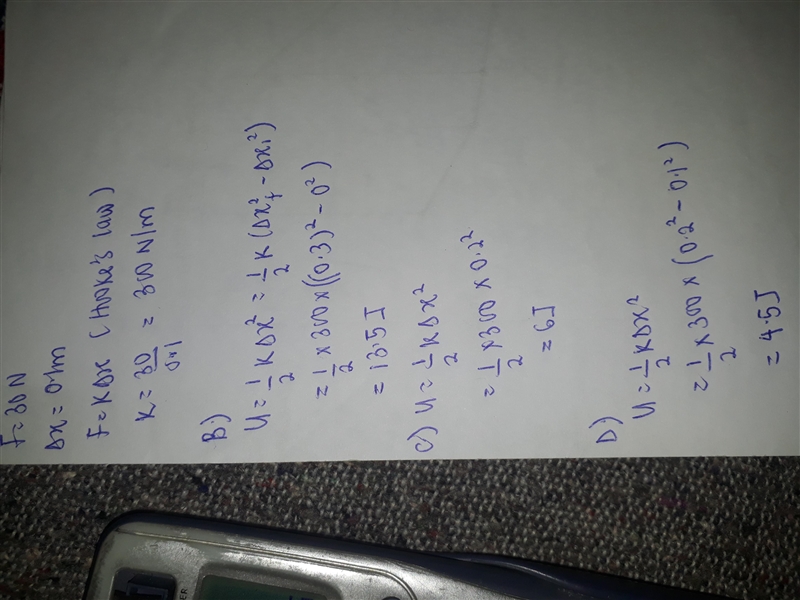 F = 30N
Δx = 0.1m
F = KΔx (Hooke's law)
K = 30/0.1 = 300 N/m
B.)
U = 1/2 KΔx² = 1/2 K (Δx_f² - Δx_i²)
= 1/2 x 300 x ((0.3)² - 0²)
= 13.5J
C) U = 1/2 KΔx²
= 1/2 x 300 x 0.2²
= 6J
D)
U = 1/2 KΔx²
= 1/2 x 300 x (0.2² - 0.1²)
= 4.5J